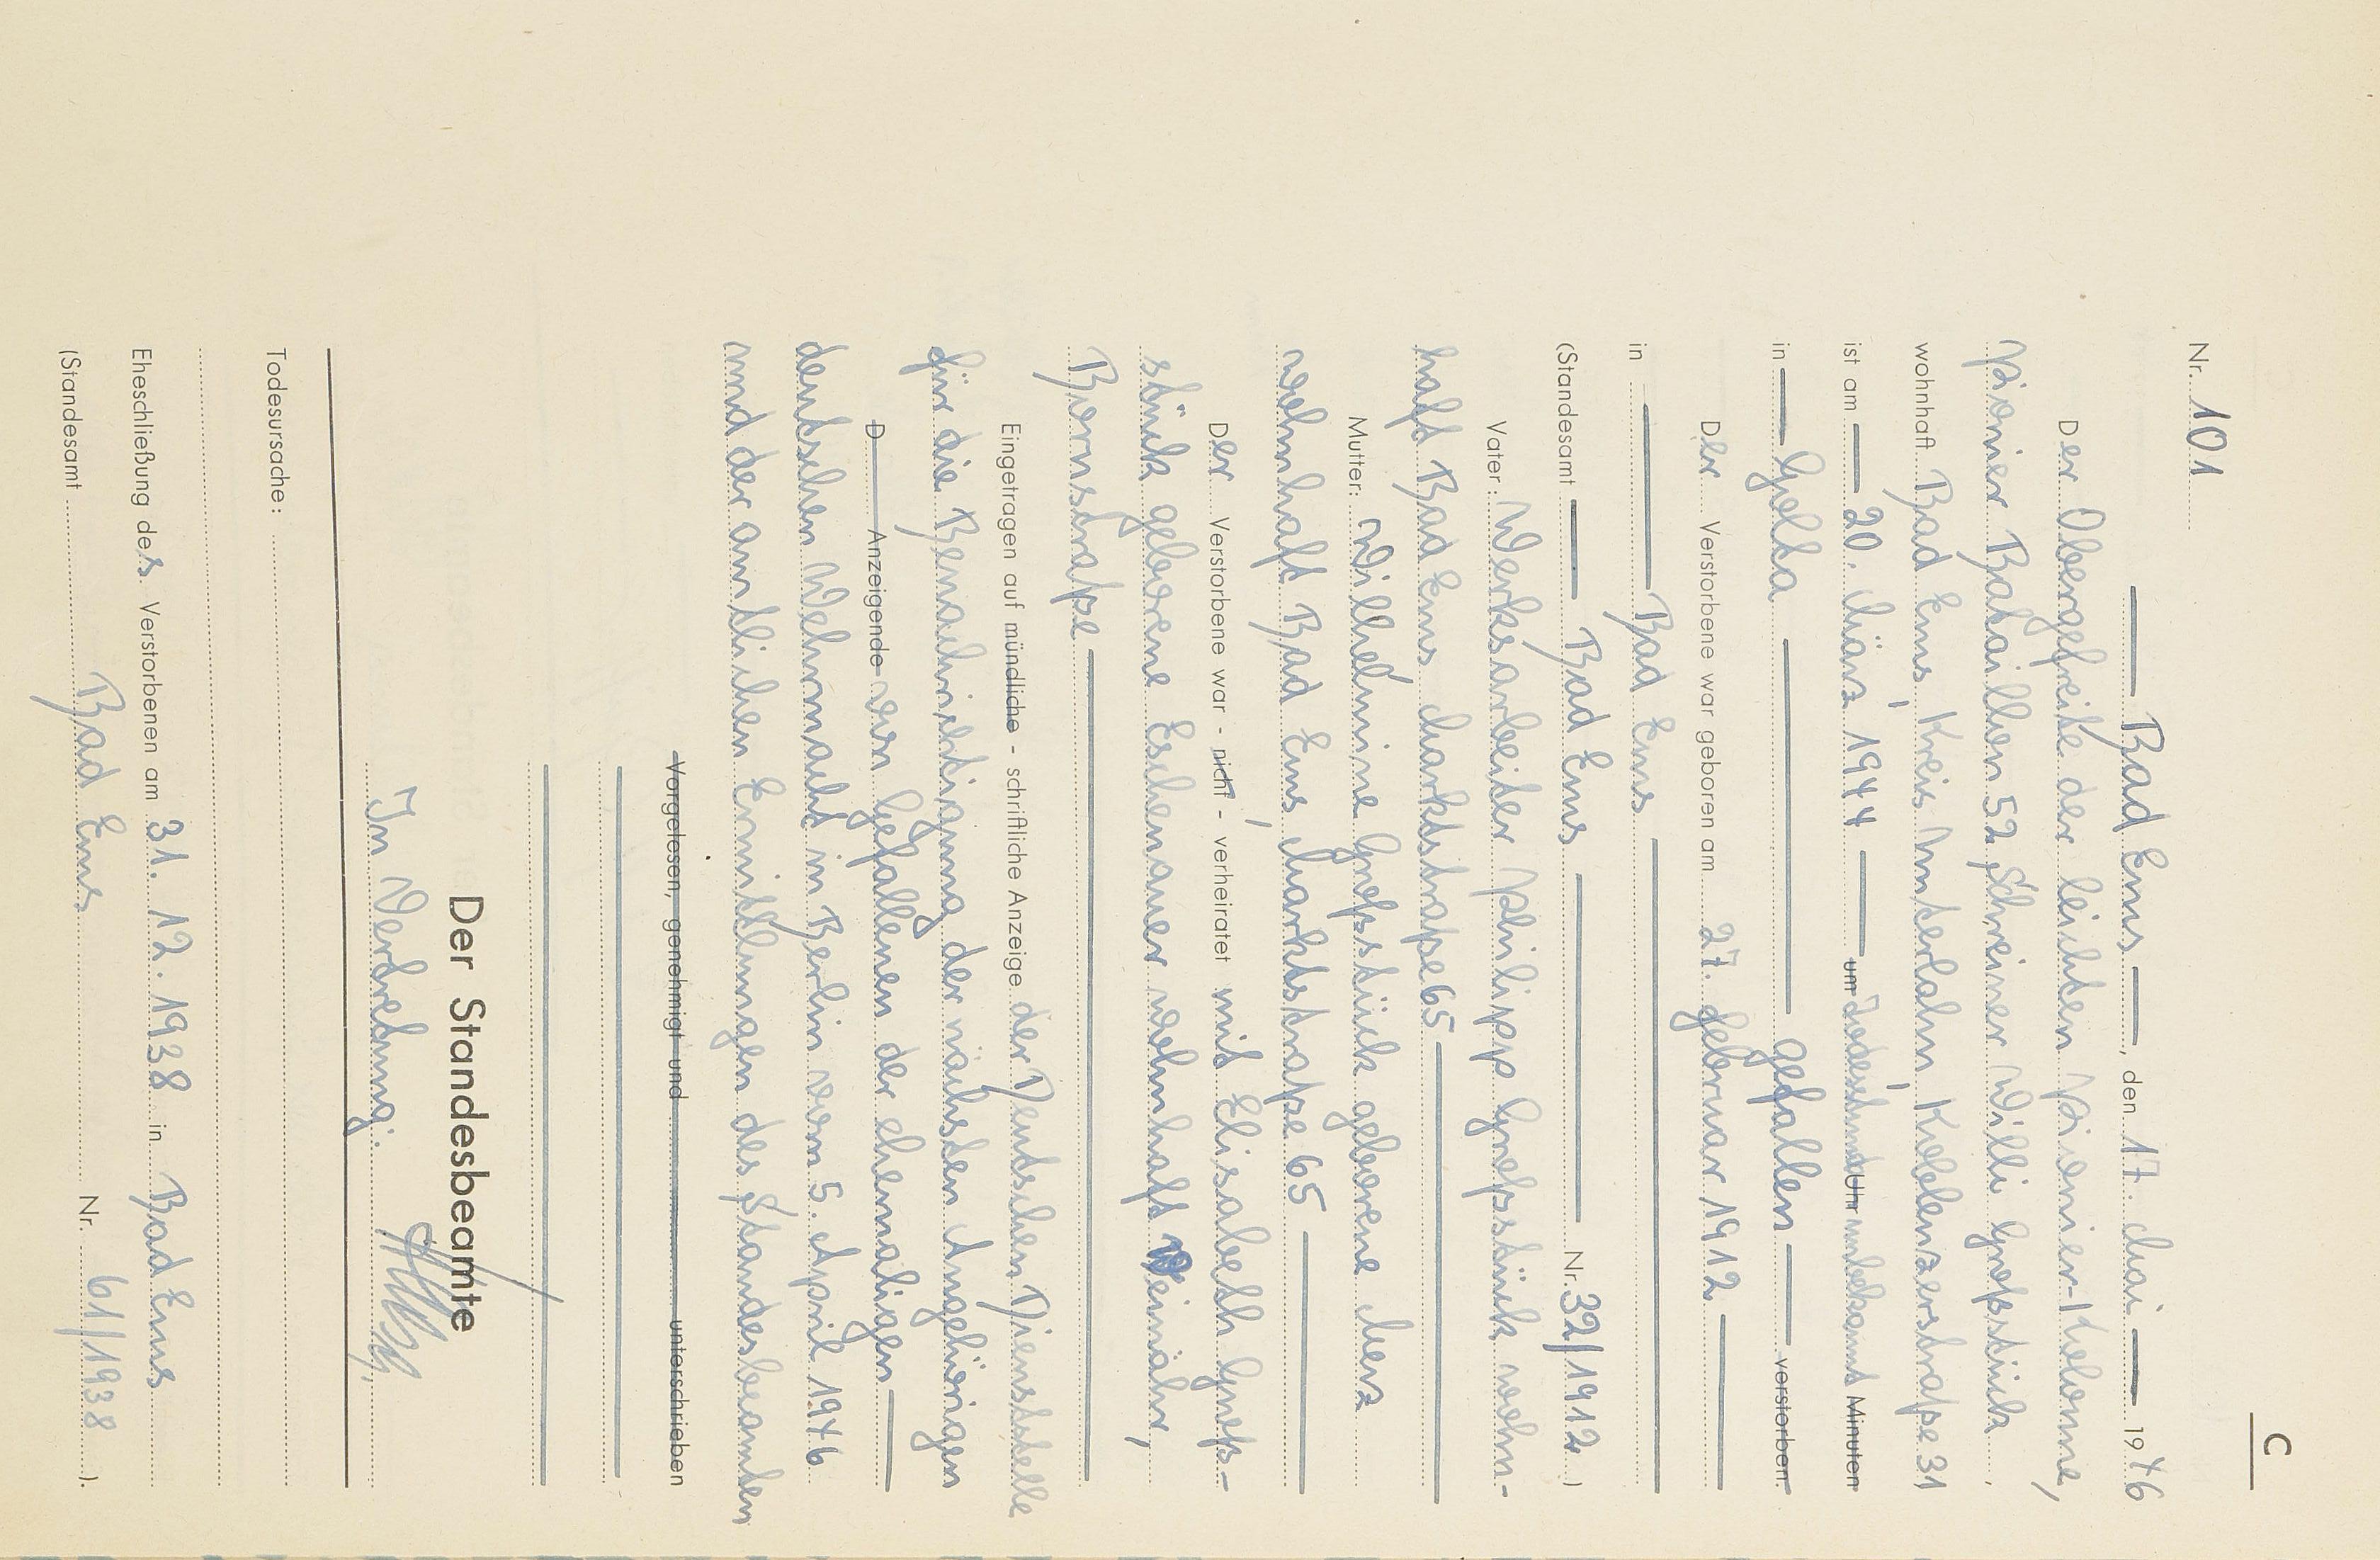 C
Nr. 101
Bad Ems, den 17. Mai 1946
Der Obergefreite der leichten Pionier-Kolonne,
Pionier Bataillon 52, Schreiner Willi Großstück,
wohnhaft Bad Ems, Kreis Unterlahn, Koblenzerstraße 31
ist am 20. März 1944 um Todesstunde Uhr unbekannt Minuten
in Golta gefallen verstorben.
Der Verstorbene war geboren am 27. Februar 1912
in Bad Ems
(Standesamt Bad Ems Nr. 32/1912)
Vater: Werksarbeiter Philipp Großstück wohn-
haft Bad Ems Marktstraße 65
Mutter: Wilhelmine Großstück geborene Merz
wohnhaft Bad Ems, Marktstraße 65
Der Verstorbene war - nicht - verheiratet mit Elisabeth Groß-
stück geborene Eschenauer wohnhaft Weinähr,
Bornstraße
Eingetragen auf mündliche - schriftliche Anzeige der Deutschen Dienststelle
für die Benachrichtigung der nächsten Angehörigen
D Anzeigende von Gefallenen der ehemaligen
deutschen Wehrmacht in Berlin vom 5. April 1946
und der amtlichen Ermittlungen des Standesbeamten
Vorgelesen, genehmigt und unterschrieben
Der Standesbeamte
In Vertretung:
Todesursache:
Eheschließung des Verstorbenen am 31. 12. 1938 in Bad Ems
(Standesamt Bad Ems Nr. 61/1938).